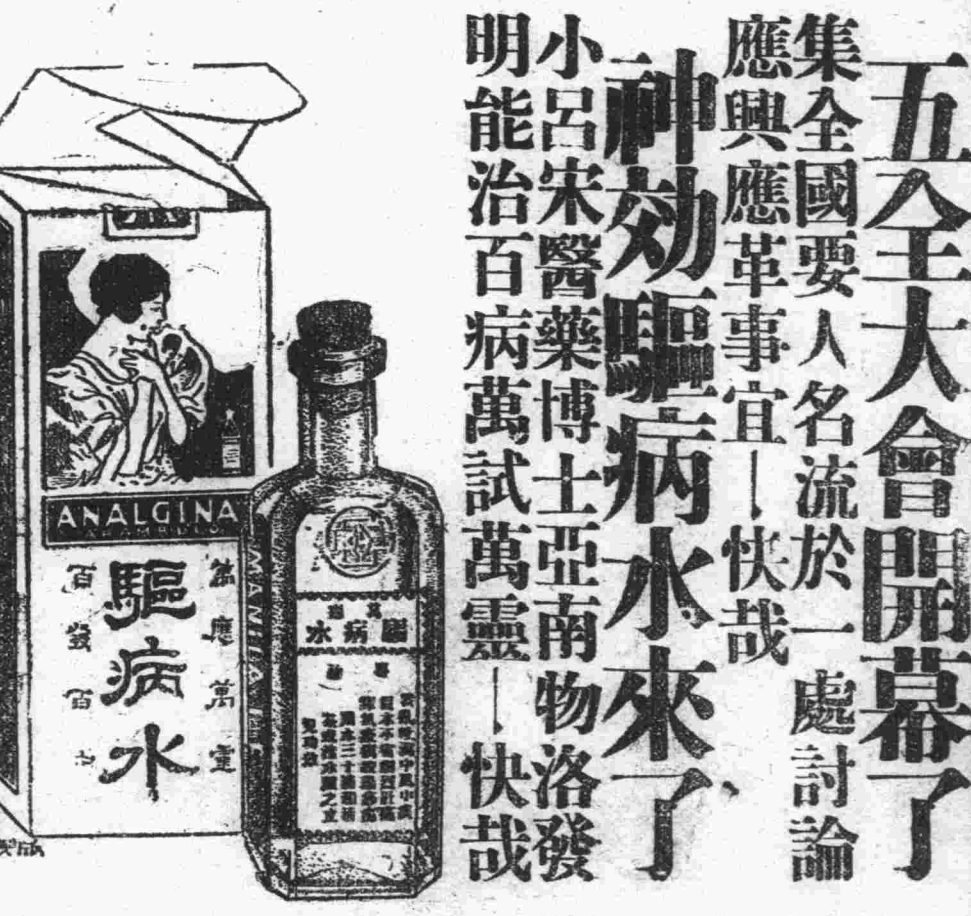 五全大會開幕了
集全國要人名流於一處討論
應興應革事宜—快哉
神効驅病水來了
小呂宋醫藥博士亞南物洛發
明能治百病萬試萬靈—快哉
ANALGINA
萬應萬靈
驅病水
百發百中
MANILA
萬應
驅病水